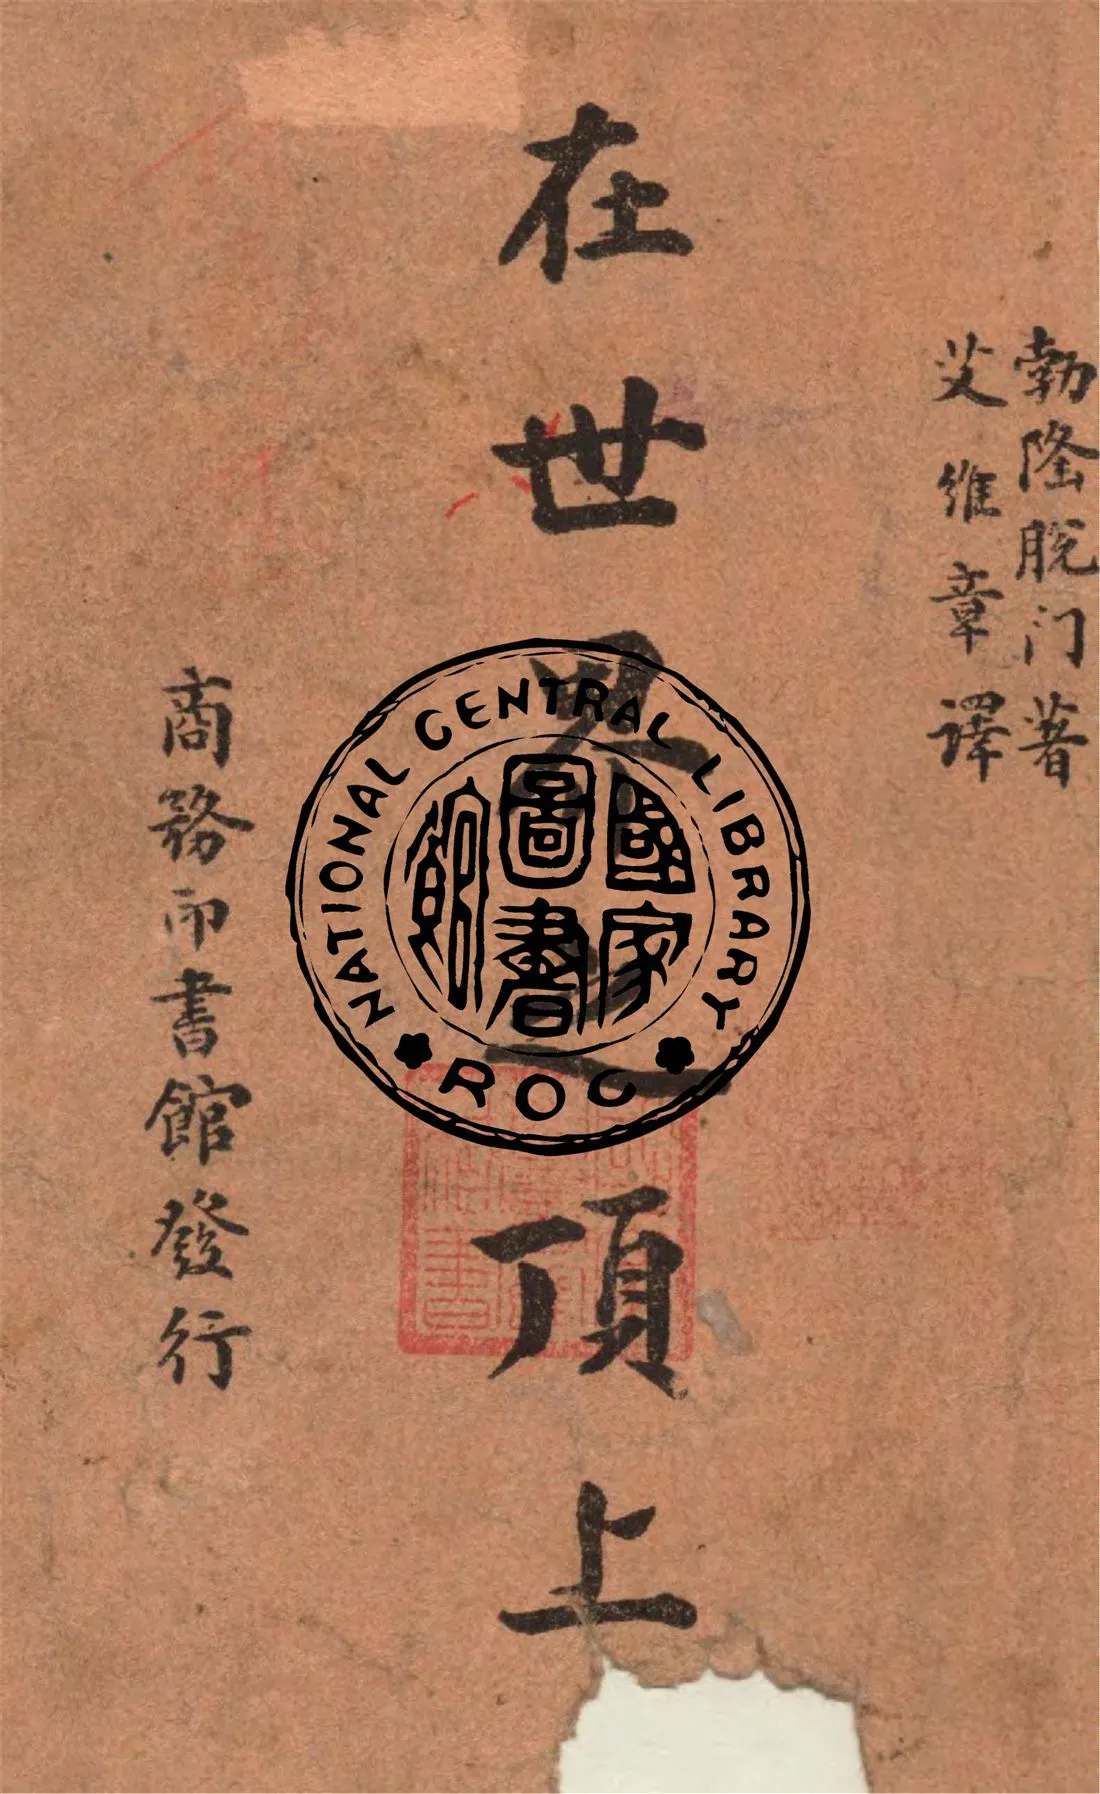 勃隆脱门著
艾维章译
在世界之顶上
商務印書館發行
NATIONAL CENTRAL LIBRARY
國家圖書館
ROC